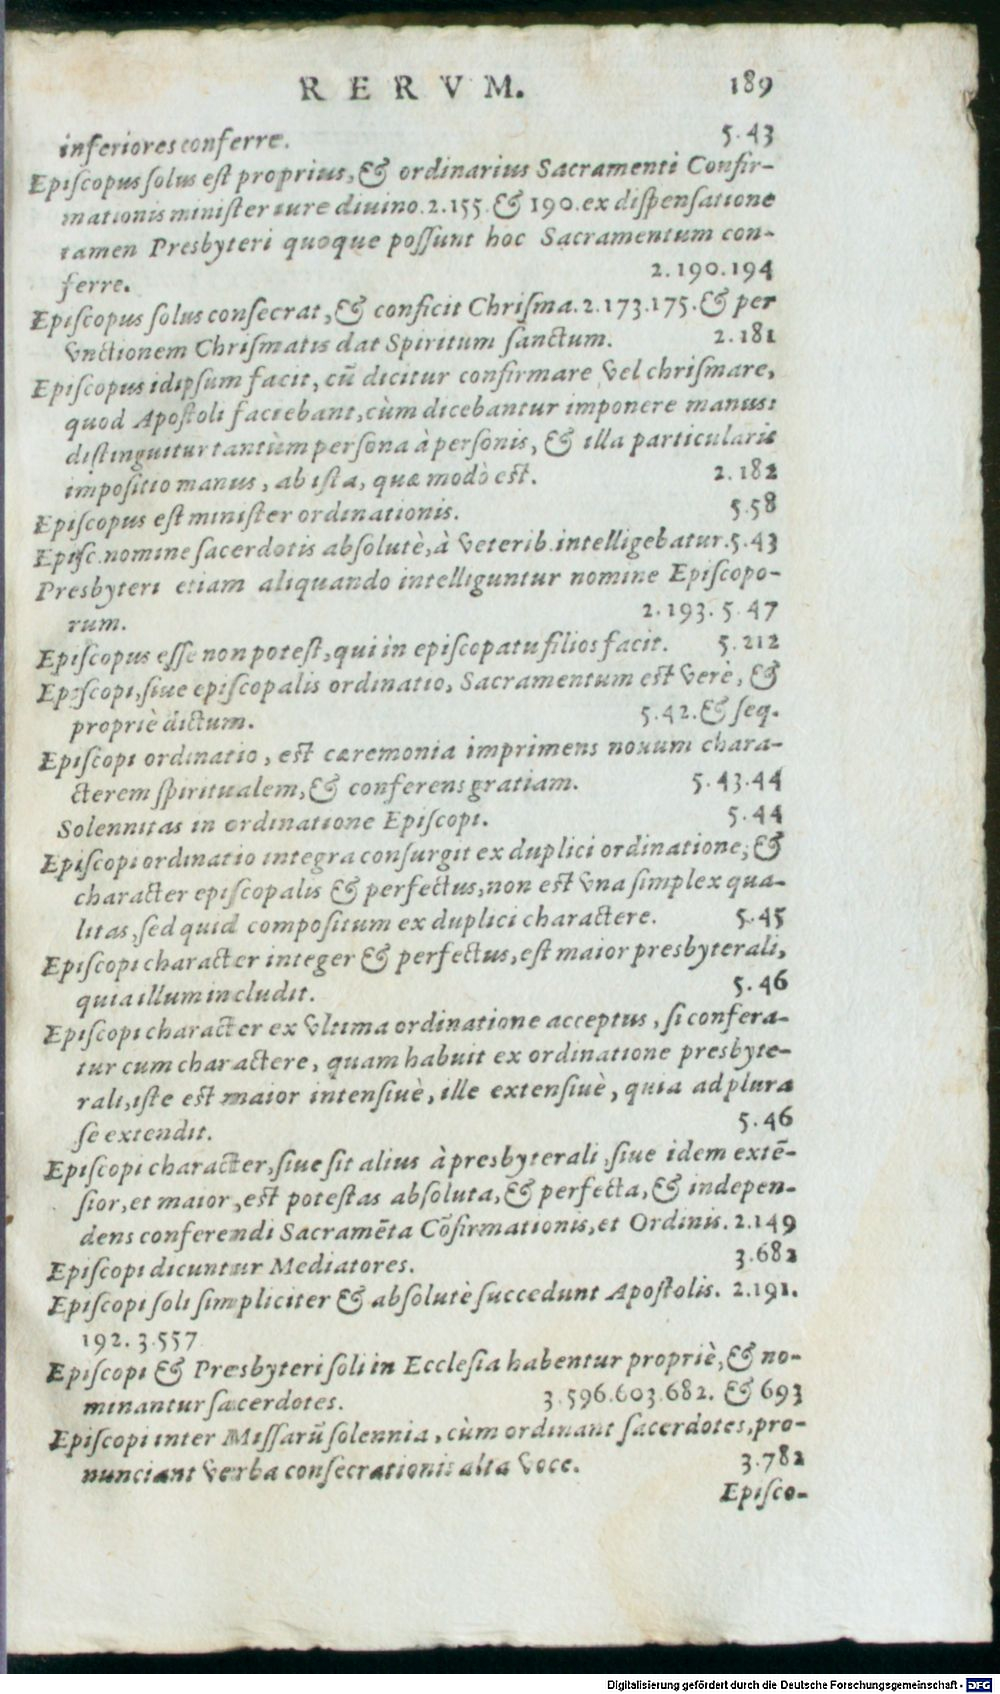 RERVM. 189
inferiores conferre. 5.43
Episcopus solus est proprius, & ordinarius Sacramenti Confir-
mationis minister iure diuino. 2.155. & 190. ex dispensatione
tamen Presbyteri quoque possunt hoc Sacramentum con-
ferre. 2.190.194
Episcopus solus consecrat, & conficit Chrisma. 2.173.175. & per
vnctionem Chrismatis dat Spiritum sanctum. 2.181
Episcopus idipsum facit, cū dicitur confirmare vel chrismare,
quod Apostoli faciebant, cùm dicebantur imponere manus:
distinguitur tantùm persona à personis, & illa particularis
impositio manus, ab ista, quæ modò est. 2.182
Episcopus est minister ordinationis. 5.58
Episc. nomine sacerdotis absolutè, à veterib. intelligebatur. 5.43
Presbyteri etiam aliquando intelliguntur nomine Episcopo-
rum. 2.193. 5.47
Episcopus esse non potest, qui in episcopatu filios facit. 5.212
Episcopi, siue episcopalis ordinatio, Sacramentum est verè, &
propriè dictum. 5.42. & seq.
Episcopi ordinatio, est cæremonia imprimens nouum chara-
cterem spiritualem, & conferens gratiam. 5.43.44
Solennitas in ordinatione Episcopi. 5.44
Episcopi ordinatio integra consurgit ex duplici ordinatione; &
character episcopalis & perfectus, non est vna simplex qua-
litas, sed quid compositum ex duplici charactere. 5.45
Episcopi character integer & perfectus, est maior presbyterali,
quia illum includit. 5.46
Episcopi character ex vltima ordinatione acceptus, si confera-
tur cum charactere, quam habuit ex ordinatione presbyte-
rali, iste est maior intensiuè, ille extensiuè, quia ad plura
se extendit. 5.46
Episcopi character, siue sit alius à presbyterali, siue idem extē-
sior, et maior, est potestas absoluta, & perfecta, & indepen-
dens conferendi Sacramēta Cōfirmationis, et Ordinis. 2.149
Episcopi dicuntur Mediatores. 3.682
Episcopi soli simpliciter & absolutè succedunt Apostolis. 2.191.
192. 3.557
Episcopi & Presbyteri soli in Ecclesia habentur propriè, & no-
minantur sacerdotes. 3.596.603.682. & 693
Episcopi inter Missarū solennia, cùm ordinant sacerdotes, pro-
nunciant verba consecrationis alta voce. 3.782
Episco-
Digitalisierung gefördert durch die Deutsche Forschungsgemeinschaft - DFG